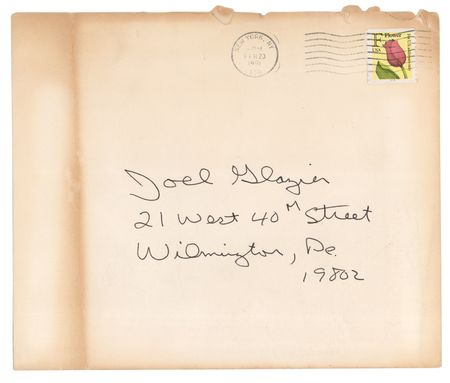 NEW YORK, NY
F Flower
USA
Joel Glazier
21 West 40th Street
Wilmington, De.
19802